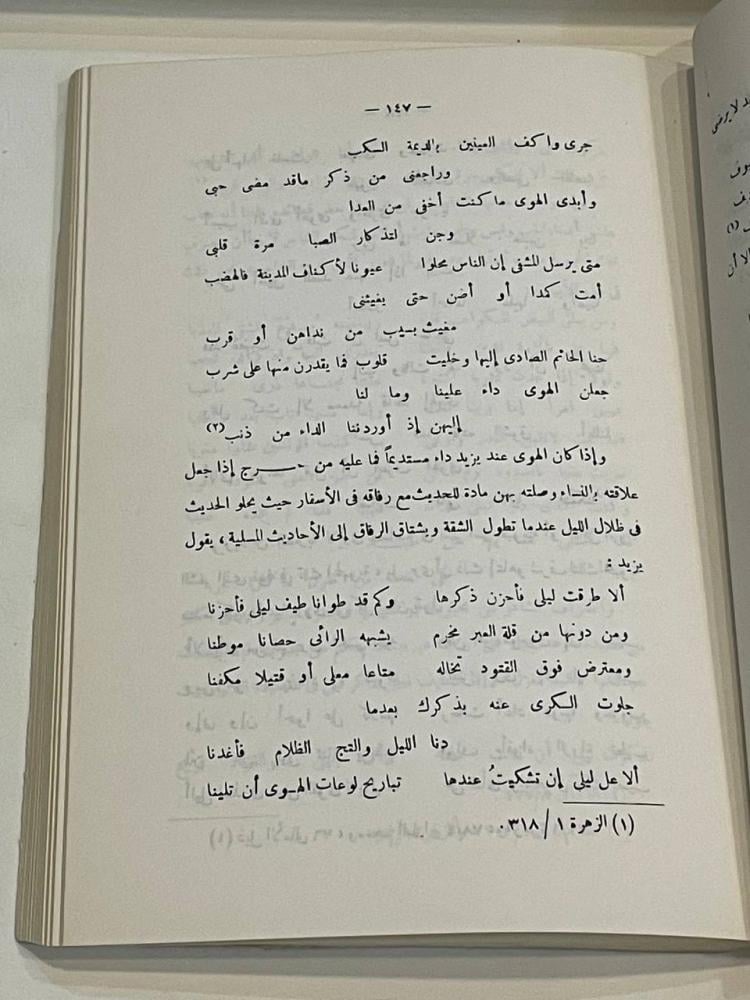 — ١٤٧ —
جرى واكف العينين بالديمة السكب
وراجعنى من ذكر ماقد مضى حبى
وأبدى الهوى ما كنت أخفى من العدا
وجن لتذكار الصبا مرة قلبى
متى يرسل المشفى إن الناس محلوا عيونا لأكناف المدينة فالهضب
أمت كمدا أو أضن حتى يغيثنى
مغيث بسيب من نداهن أو قرب
حنا الحائم الصادى إليها وخليت قلوب فما يقدرن منها على شرب
جعلن الهوى داء علينا وما لنا
إليهن إذ أوردننا الداء من ذنب(٢)
وإذا كان الهوى عند يزيد داء مستديماً فما عليه من حرج إذا جعل
علاقته بالنساء وصلته بهن مادة للحديث مع رفاقه فى الأسفار حيث يحلو الحديث
فى ظلال الليل عندما تطول الشقة ويشتاق الرفاق إلى الأحاديث المسلية ، يقول
يزيد :
ألا طرقت ليلى فأحزن ذكرها وكم قد طوانا طيف ليلى فأحزنا
ومن دونها من قلة العبر مخرم يشبهه الرائى حصانا موطنا
ومعترض فوق القتود تخاله متاعا معلى أو قتيلا مكفنا
جلوت الكرى عنه بذكرك بعدما
دنا الليل والتج الظلام فأغدنا
ألا عل ليلى إن تشكيتُ عندها تباريح لوعات الهوى أن تلينا
(١) الزهرة ١ / ٣١٨ .
د لا يرضى
يوف
يف
(١)
إلا أن